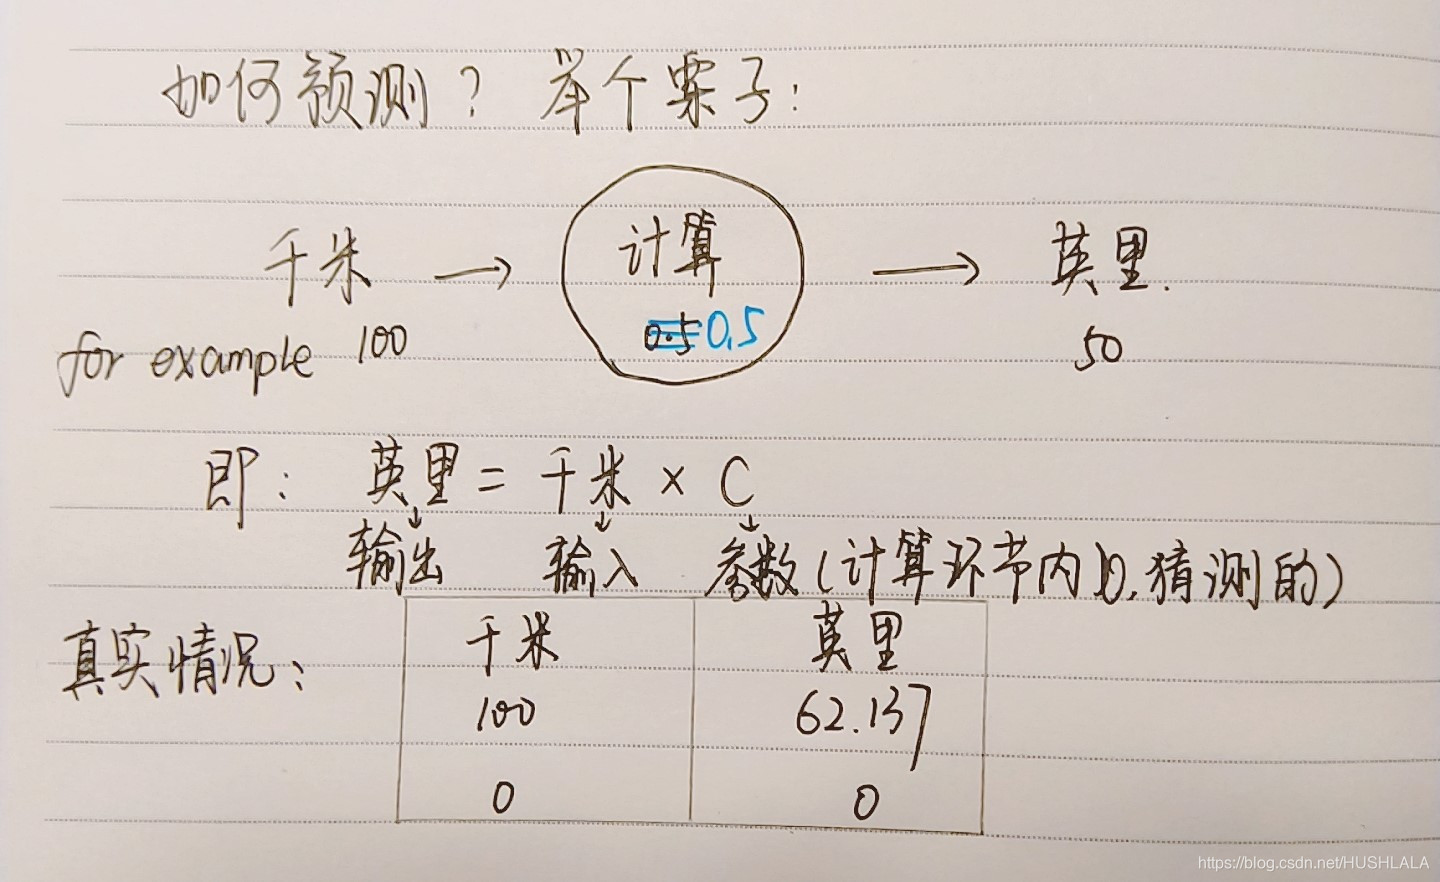 如何预测？ 举个栗子：
千米 → 计算 → 英里.
for example 100 0.5 0.5 50
即： 英里 = 千米 × C
输出 输入 参数(计算环节内的,猜测的)
真实情况： 千米 英里
100 62.137
0 0
https://blog.csdn.net/HUSHLALA